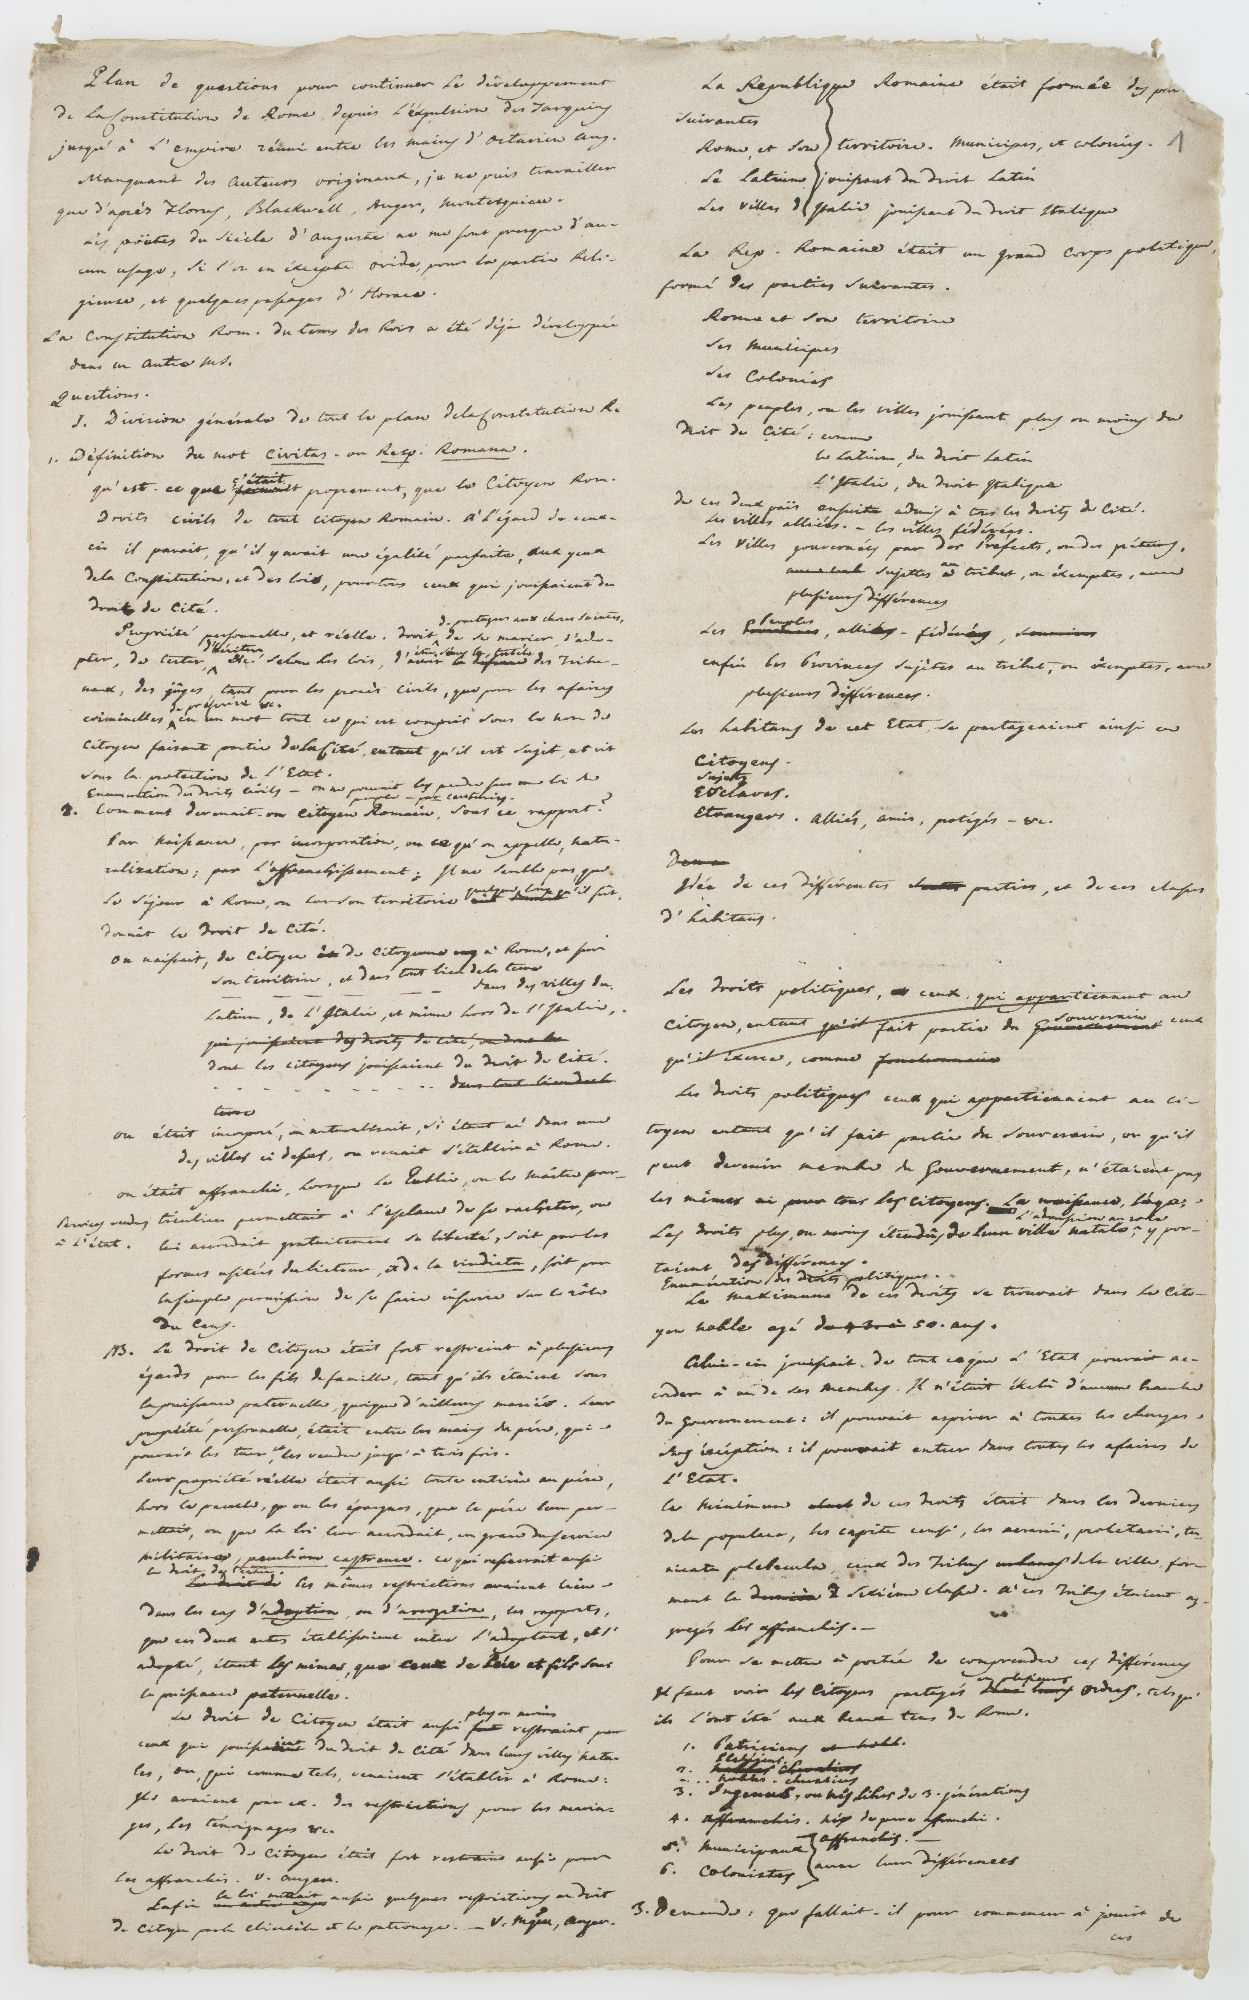 Plan de questions pour continuer le développement
de la Constitution de Rome depuis l'éxpulsion des Tarquins
jusqu'à l'empire réuni entre les mains d'Octavien Aug.
Manquant des auteurs originaux, je ne puis travailler
que d'après Florus, Blackwell, Auger, Montesquieu.
Les poëtes du siècle d'Auguste ne me sont presque d'au-
cun usage, si l'on en éxcepte Ovide, pour la partie Reli-
gieuse, et quelques passages d'Horace.
La Constitution Rom. du tems des Rois a été déja développée
dans un autre MS.
Questions.
I. Division générale de tout le plan de la Constitution R.
1. Définition du mot Civitas - ou Resp. Romana.
qu'est-ce que c'était proprement, que le Citoyen Rom.
Droits civils de tout citoyen Romain. A l'égard de ceux-
cis il parait, qu'il y avait une égalité parfaite, aux yeux
de la Constitution, et des lois, pour tous ceux qui jouissaient du
droit de Cité.
de partager aux choses saintes,
Propriété personnelle, et réelle. droit de se marier, d'ado-
d'hériter
pter, de tester, selon les lois, d'être sous la tutèle des Tribu-
naux, des juges, tant pour les procès civils, que pour les afaires
de préscrire &c.
criminelles en un mot tout ce qui est compris sous le nom de
Citoyen faisant partie de la Cité, entant qu'il est sujet, et vit
sous la protection de l'Etat.
Enumération des droits civils - on ne pouvait les perdre sans une loi du
peuple - par centuries.
2. Comment devenait-on Citoyen Romain, sous ce rapport?
Par naissance, par incorporation, ou ce qu'on appelle, natu-
ralisation; par l'affranchissement; Il ne semble pas que
le séjour à Rome, ou sur son territoire quelque long qu'il fut,
donnât le droit de Cité.
On naissait, de Citoyen de Citoyenne à Rome, et sur
son territoire, et dans tout lieu de la terre
dans des villes du
Latium, de l'Italie, et même hors de l'Italie,
qui jouissaient des droits de cité, ou dont les
dont les citoyens jouissaient du droit de Cité.
dans tout lieu de la
terre
On était incorporé, ou naturalisait, si étant né dans une
des villes ci dessus, on venait s'établir à Rome.
On était affranchi, lorsque le Public, ou le Maître par-
services rendus à l'état.
ticulier permettait à l'esclave de se racheter, ou
lui accordait gratuitement sa liberté, soit par les
formes usitées du licteur, et de la vindicta, soit par
la simple permission de se faire inscrire sur le rôle
du Cens.
NB. Le droit de Citoyen était fort restreint à plusieurs
égards pour les fils de famille, tant qu'ils étaient sous
la puissance paternelle, quoique d'ailleurs mariés. Leur
propriété personnelle, était entre les mains du père, qui
pouvait les tuer, les vendre jusqu'à trois fois.
Leur propriété réelle était aussi toute entière au père,
hors le pecule, ou les épargnes, que le père leur per-
mettait, ou que la loi leur accordait, en grace du service
militaire, peculium castrense. ce qui resserrait aussi
le droit de tester.
Le droit de les mêmes restrictions avaient lieu
dans les cas d'adoption, ou d'arrogation, les rapports,
que ces deux actes établissaient entre l'adoptant, et l'
adopté, étant les mêmes, que ceux de Père et fils sous
la puissance paternelle.
plus ou moins
Le droit de Citoyen était aussi fort restraint pour
ceux qui jouissaient du droit de Cité dans leurs villes nata-
les, ou, qui comme tels, venaient s'établir à Rome:
Ils avaient par ex. des restrictions pour les maria-
ges, les témoignages &c.
Le droit de Citoyen était fort restraint aussi pour
les affranchis. v. Auger.
Enfin la loi mettait aussi quelques restrictions au droit
de Citoyen par la Clientèle et le patronage. — v. Mqu, Auger.
La Republique Romaine était formée des par
suivantes
Rome et son territoire. Municipes, et colonies.
Le Latium jouissant du droit Latin
Les villes d'Italie jouissant du droit Italique
1
La Rep. Romaine était un grand corps politique,
formé des parties suivantes.
Rome et son territoire
Les Municipes
Les Colonies
Les peuples, ou les villes jouissant plus ou moins du
Droit de Cité: comme
le Latium, du droit Latin
L'Italie, du droit Italique
de ces deux païs ensuite admis à tous les droits de Cité.
Les villes alliées. - les villes fédérées.
Les Villes gouvernées par des Préfects, ou des préteurs,
sujettes au tribut, ou éxemptes, avec
plusieurs différences
Les Peuples, alliés - fédérés, soumises
enfin les Provinces sujètes au tribut, ou éxemptes, avec
plusieurs différences.
Les habitans de cet Etat, se partageaient ainsi en
Citoyens.
Sujets
Esclaves.
Etrangers. Alliés, amis, protégés - &c.
Idée de ces différentes parties, et de ces classes
d'habitans.
Les droits politiques, ceux, qui appartiennent au
Citoyen, entant qu'il fait partie du souverain Gouvernement ceux
qu'il éxerce, comme fonctionnaire
Les droits politiques ceux qui appartiennent au ci-
toyen entant qu'il fait partie du souverain, ou qu'il
peut devenir membre du Gouvernement, n'étaient pas
les mêmes pour tous les Citoyens. La naissance, l'age,
l'admission au role
Les droits plus, ou moins étendus de leur ville natale, y por-
taient des différences.
Enumération des droits politiques.
Le maximum de ces droits se trouvait dans le Cito-
yen noble agé de 43 à 50. ans.
Celui-ci jouissait de tout ce que l'Etat pouvait ac-
corder à un de ses membres. Il n'était éxclu d'aucune branche
du Gouvernement: il pouvait aspirer à toutes les charges,
sans éxception: il pouvait entrer dans toutes les afaires de
l'Etat.
Le minimum de ces droits était dans les derniers
de la populace, les capite censi, les aerarii, proletarii, tu-
nicata plebecula, ceux des Tribus urbanes de la ville, for-
mant la dernière sixième classe. A ces Tribus étaient ag-
gregés les affranchis.—
Pour se mettre à portée de comprendre ces différences
en plusieurs
Il faut voir les Citoyens partagés dans leurs ordres, tels qu'
ils l'ont été aux beaux tems de Rome.
1. Patriciens et nobl.
Plebéjens.
2. nobles Chevaliers
nobles. chevaliers
3. Ingenus, ou nés libres de 3. générations
4. affranchis. nés de pere affranchi.
affranchis.—
5. Municipaux
6. Colonistes
avec leurs différences
3. Demande: que fallait-il pour commencer à jouir de
ces